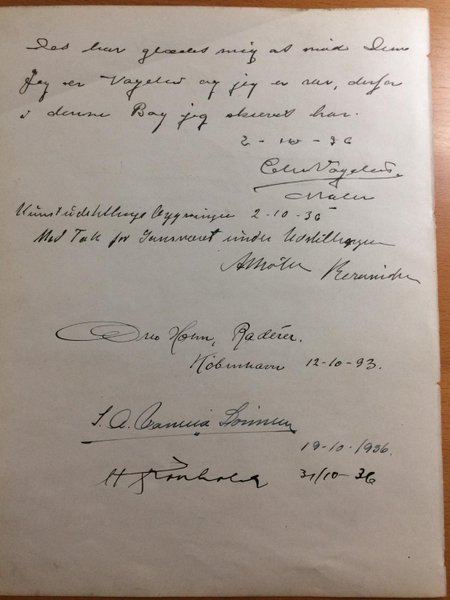 Det har glædet mig at møde Dem
Jeg er Vogelius og jeg er rar, derfor
i denne Bog jeg skrevet har.
2-10-36
Vogelius.
Maler
Kunstudstillings Bygningen 2-10-36
Med Tak for Samværet under Udstillingen
Keramiker
Holm, Raderer.
København 12-10-93.
19-10-1936.
H 31/10-36